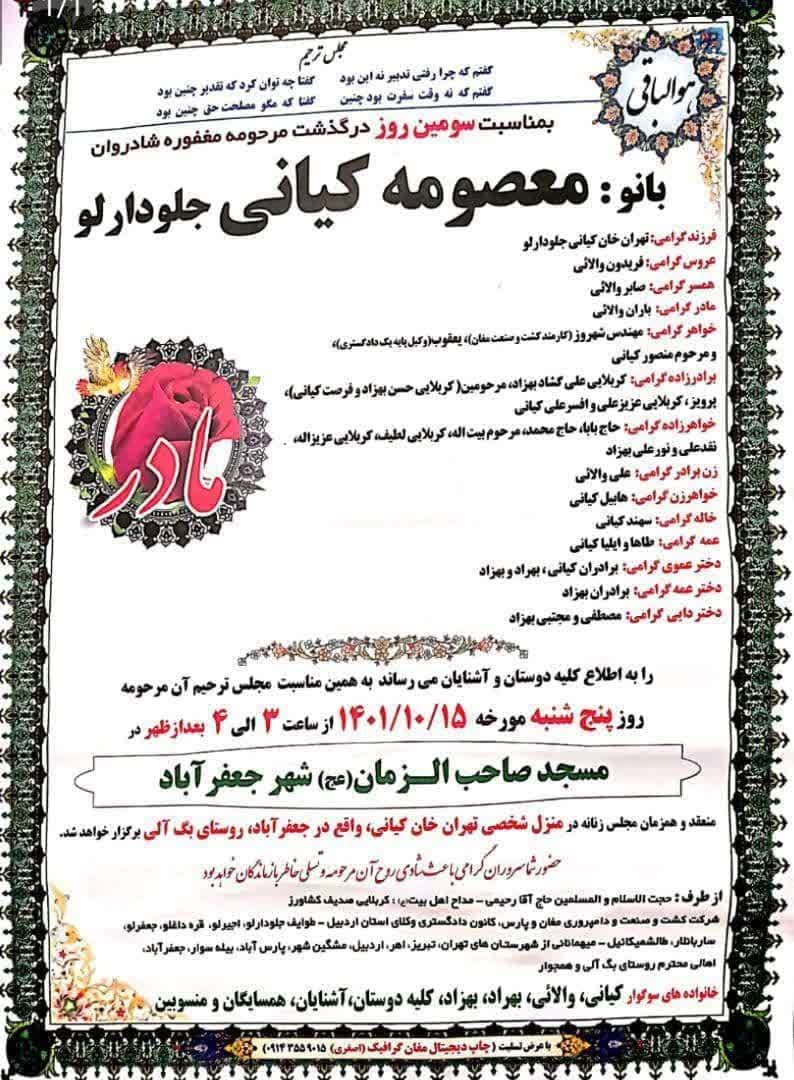 1/1
مجلس ترحیم
هوالباقی
گفتم که چرا رفتی تدبیر نه این بود گفتا چه توان کرد که تقدیر چنین بود
گفتم که نه وقت سفرت بود چنین گفتا که مگو مصلحت حق چنین بود
بمناسبت سومین روز درگذشت مرحومه مغفوره شادروان
بانو : معصومه کیانی جلودارلو
فرزند گرامی: تهران خان کیانی جلودارلو
عروس گرامی: فریدون والائی
همسر گرامی: صابر والائی
مادر گرامی: باران والائی
خواهر گرامی: مهندس شهروز (کارمند کشت و صنعت مغان)، یعقوب(وکیل پایه یک دادگستری)،
و مرحوم منصور کیانی
برادرزاده گرامی: کربلایی علی گشاد بهزاد، مرحومین( کربلایی حسن بهزاد و فرصت کیانی)،
پرویز، کربلایی عزیز علی و افسر علی کیانی
خواهرزاده گرامی: حاج بابا، حاج محمد، مرحوم بیت اله، کربلایی لطیف، کربلایی عزیزاله،
نقدعلی و نورعلی بهزاد
زن برادر گرامی: علی والائی
خواهرزن گرامی: هابیل کیانی
خاله گرامی: سهند کیانی
عمه گرامی: طاها و ایلیا کیانی
دختر عموی گرامی: برادران کیانی، بهراد و بهزاد
دختر عمه گرامی: برادران بهزاد
دختر دایی گرامی: مصطفی و مجتبی بهزاد
مادر
را به اطلاع کلیه دوستان و آشنایان می رساند به همین مناسبت مجلس ترحیم آن مرحومه
روز پنج شنبه مورخه ۱۴۰۱/۱۰/۱۵ از ساعت ۳ الی ۴ بعدازظهر در
مسجد صاحب الـزمان(عج) شهر جعفرآباد
منعقد و همزمان مجلس زنانه در منزل شخصی تهران خان کیانی، واقع در جعفرآباد، روستای بگ آلی برگزار خواهد شد.
حضور شما سروران گرامی باعث شادی روح آن مرحومه و تسلی خاطر بازماندگان خواهد بود
از طرف : حجت الاسلام و المسلمین حاج آقا رحیمی - مداح اهل بیت(ع): کربلایی صدیف کشاورز
شرکت کشت و صنعت و دامپروری مغان و پارس، کانون دادگستری وکلای استان اردبیل - طوایف جلودارلو، اجیرلو، قره داغلو، جعفرلو،
ساربانلار، طالشمیکائیل - میهمانانی از شهرستان های تهران، تبریز، اهر، اردبیل، مشگین شهر، پارس آباد، بیله سوار، جعفرآباد،
اهالی محترم روستای بگ آلی و همجوار
خانواده های سوگوار کیانی، والائی، بهراد، بهزاد، کلیه دوستان،آشنایان، همسایگان و منسوبین
با عرض تسلیت (چاپ دیجیتال مغان گرافیک (اصغری) ۰۹۱۴۳۵۵۹۰۱۵)